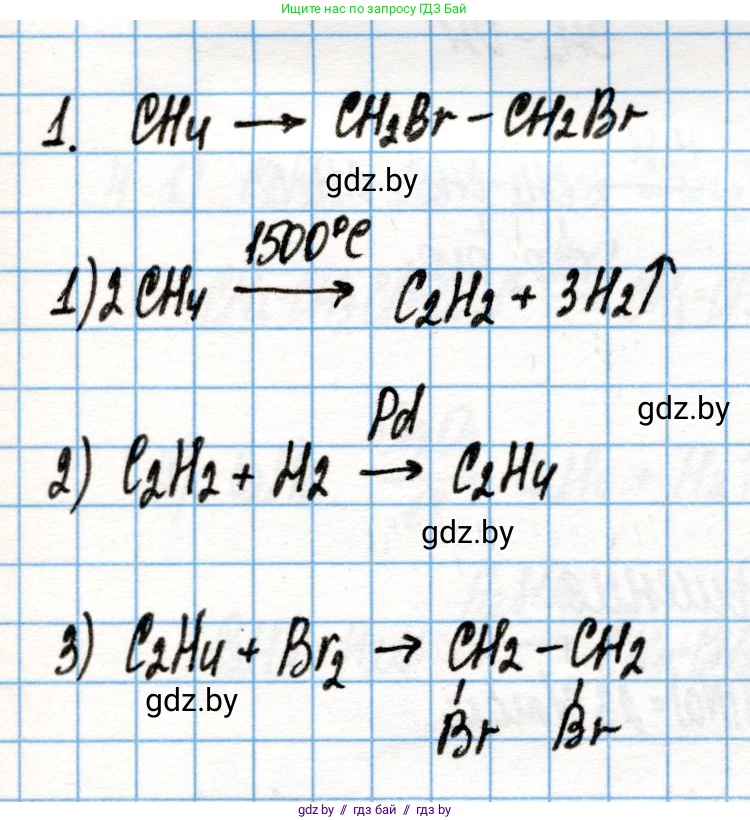 Ищите нас по запросу ГДЗ Бай
1. CH₄ → CH₂Br – CH₂Br
gdz.by
1500°C
1) 2 CH₄ → C₂H₂ + 3H₂↑
gdz.by
Pd
2) C₂H₂ + H₂ → C₂H₄
gdz.by
3) C₂H₄ + Br₂ → CH₂ – CH₂
gdz.by
Br Br
gdz.by // гдз бай // гдз by